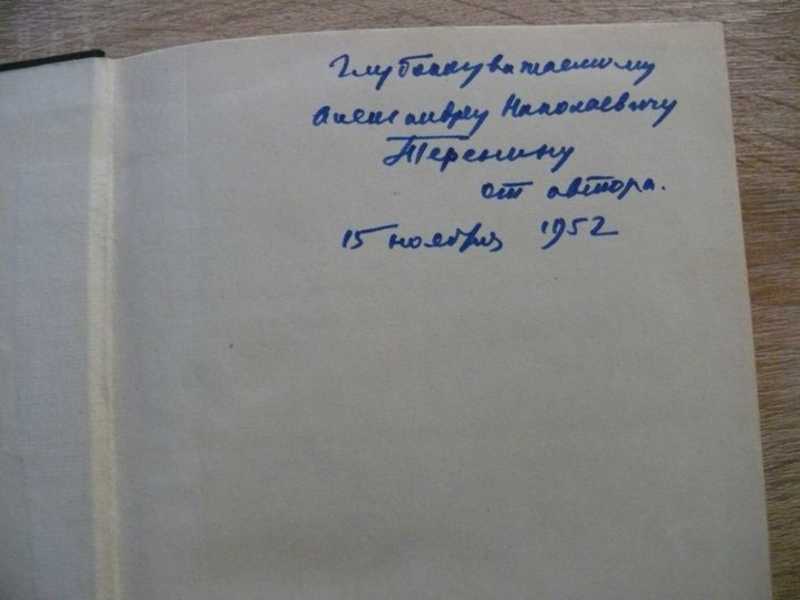 Глубокоуважаемому
Александру Николаевичу
Теренину
от автора.
15 ноября 1952